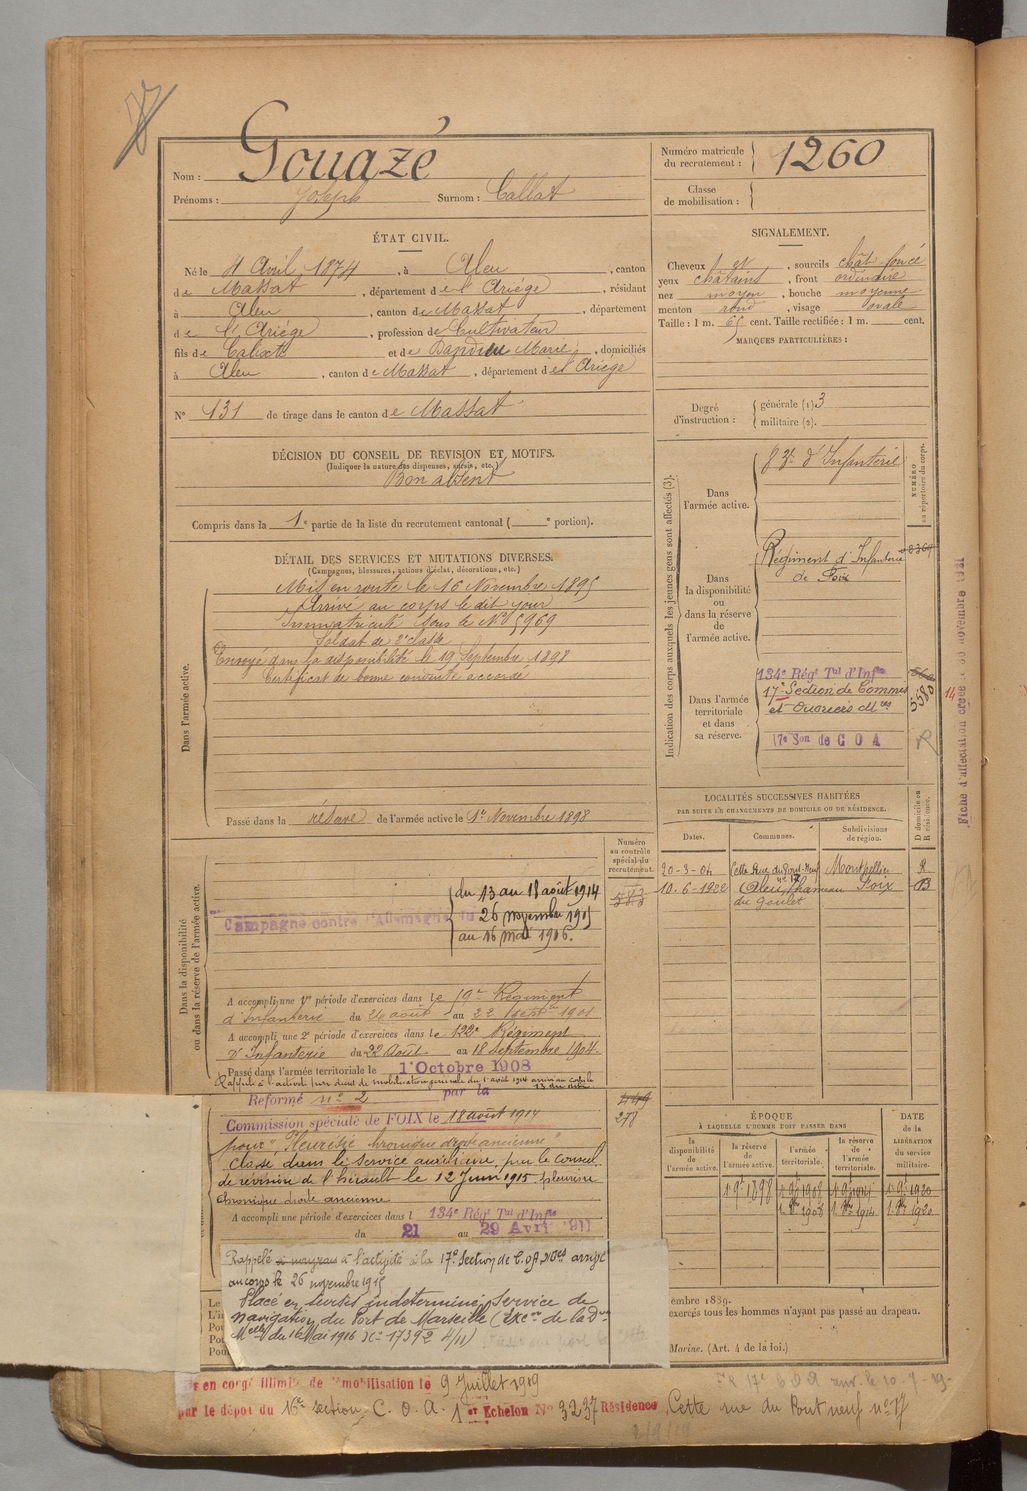 Nom : Gouazé
Prénoms : Joseph Surnom : Callat
Numéro matricule du recrutement : 1260
Classe de mobilisation :
ÉTAT CIVIL.
Né le 4 Avril 1874, à Aleu, canton
de Massat, département de l'Ariège, résidant
à Aleu, canton de Massat, département
de l'Ariège, profession de Cultivateur
fils de Calixte et de Dandine Marie, domiciliés
à Aleu, canton de Massat, département de l'Ariège
N° 131 de tirage dans le canton de Massat
SIGNALEMENT.
Cheveux et, sourcils chât. foncé
yeux châtains, front ordinaire
nez moyen, bouche moyenne
menton rond, visage ovale
Taille : 1 m. 65 cent. Taille rectifiée : 1 m. cent.
MARQUES PARTICULIÈRES :
Degré d'instruction : générale (1) 3
militaire (2).
DÉCISION DU CONSEIL DE REVISION ET MOTIFS.
(Indiquer la nature des dispenses, sursis, etc.)
Bon absent
Compris dans la 1e partie de la liste du recrutement cantonal ( e portion).
DÉTAIL DES SERVICES ET MUTATIONS DIVERSES.
(Campagnes, blessures, actions d'éclat, décorations, etc.)
Dans l'armée active.
Mis en route le 16 Novembre 1895
Arrivé au corps le dit jour
Immatriculé sous le N° 5969
Soldat de 2e classe
Envoyé dans la disponibilité le 19 Septembre 1898
Certificat de bonne conduite accordé
Passé dans la réserve de l'armée active le 1er Novembre 1898
Indication des corps auxquels les jeunes gens sont affectés (3).
NUMÉRO au répertoire du corps.
Dans l'armée active.
83e d'Infanterie
Dans la disponibilité ou dans la réserve de l'armée active.
Régiment d'Infanterie
de Foix
Dans l'armée territoriale et dans sa réserve.
134e Régt Tal d'Infie
17e Section de Commis
et Ouvriers Mres
17e Son de C O A
Fiche d'affectation créée le 30 novembre 1921
LOCALITÉS SUCCESSIVES HABITÉES
PAR SUITE DE CHANGEMENTS DE DOMICILE OU DE RÉSIDENCE.
Dates. Communes. Subdivisions de région. D domicile ou R résidence.
20-3-04 Cette Rue du Pont-Neuf n° 17 Montpellier R
10-6-1922 Aleu, hameau du goulet Foix D
Numéro au contrôle spécial du recrutement.
583
Dans la disponibilité ou dans la réserve de l'armée active.
Campagne contre l'Allemagne du
du 13 au 18 août 1914
26 novembre 1915
au 16 mai 1916.
A accompli une 1re période d'exercices dans le 19e Régiment
d'Infanterie du 26 août au 22 Septbre 1901
A accompli une 2e période d'exercices dans le 122e Régiment
d'Infanterie du 22 Août au 18 Septembre 1904
Passé dans l'armée territoriale le 1er Octobre 1908
Rappelé à l'activité par décret de mobilisation générale du 1er août 1914 arrivé au corps le
13 du dit
Reformé n° 2 par la
Commission spéciale de FOIX le 18 août 1914
pour "Pleurésie chronique droite ancienne"
classé dans le service auxiliaire par le conseil
de révision de l'hérault le 12 Juin 1915 pleurésie
chronique droite ancienne
278
A accompli une période d'exercices dans l 134e Régt Tal d'Infie
du 21 au 29 Avril 1911
Rappelé à l'activité à la 17e Section de C.O.A. arrivé
au corps le 26 novembre 1915
Placé en sursis indéterminé Service de
navigation du Port de Marseille (Exon de la Don
Melle du 16 Mai 1916 N° 17392 4/11)
ÉPOQUE
À LAQUELLE L'HOMME DOIT PASSER DANS
la disponibilité de l'armée active. la réserve de l'armée active. l'armée territoriale. la réserve de l'armée territoriale.
DATE de la LIBÉRATION du service militaire.
1 9bre 1898 1 9bre 1908 1 9bre 1914 1 9bre 1920
1 8bre 1908 1 8bre 1914 1 8bre 1920
embre 1889.
exercés tous les hommes n'ayant pas passé au drapeau.
Marine. (Art. 4 de la loi.)
Mis en congé illimité de démobilisation le 9 Juillet 1919
par le dépôt du 16e section C. O. A. 1er Echelon N° 3237 Résidence Cette rue du Pont neuf n° 17